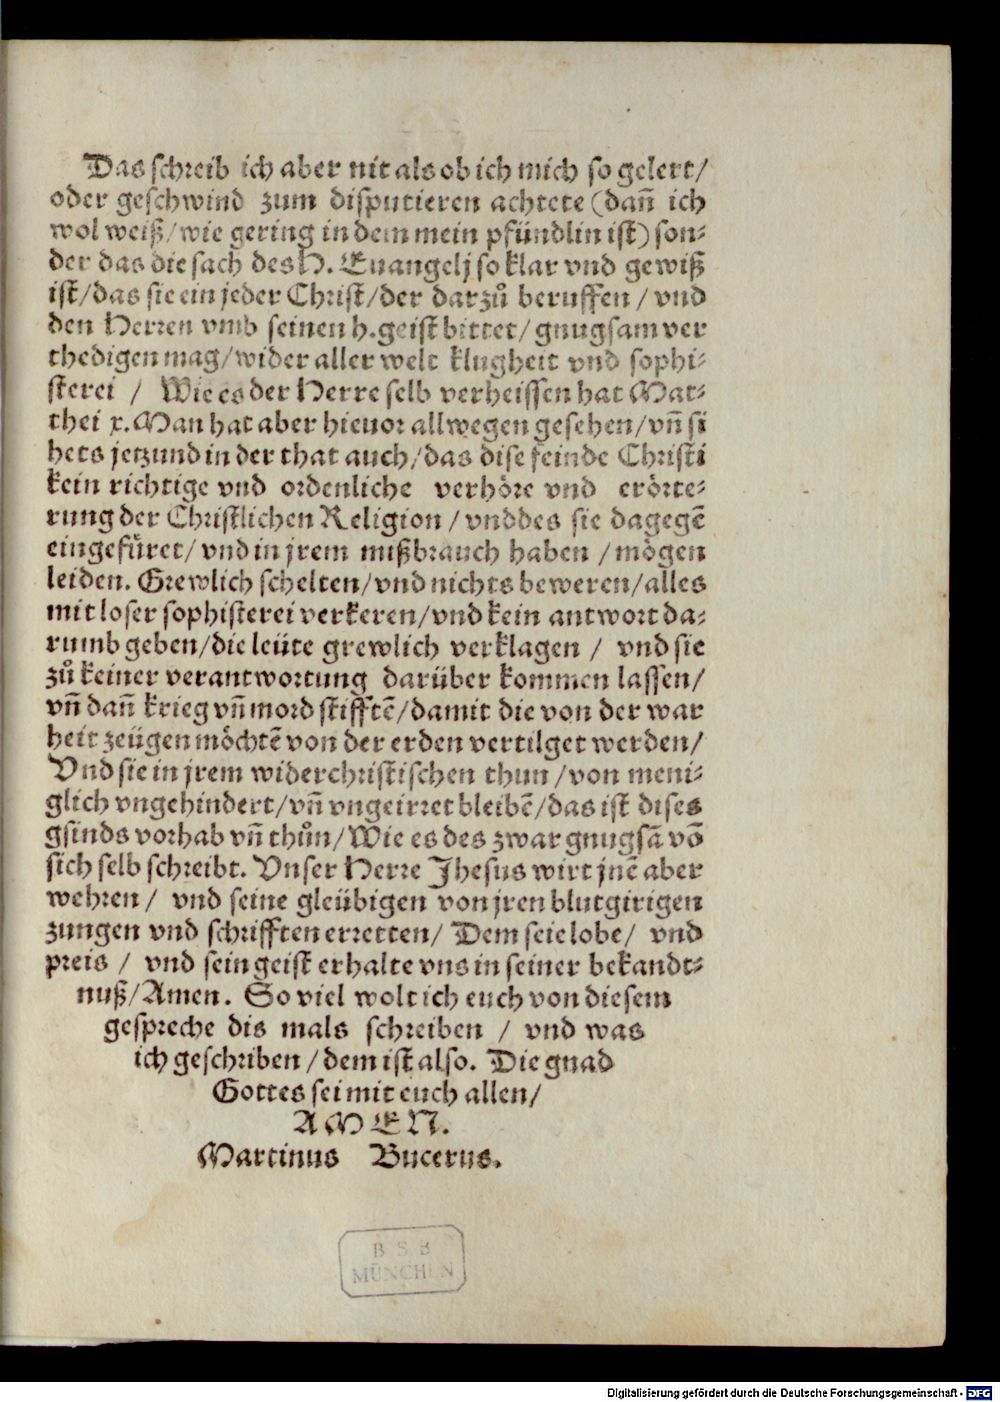 Das schreib ich aber nit als ob ich mich so gelert/
oder geschwind zum disputieren achtete (dañ ich
wol weiß/wie gering in dem mein pfündlin ist) son⸗
der das die sach des H. Euangelj so klar vnd gewiß
ist/das sie ein jeder Christ/der darzů beruffen/vnd
den Herren vmb seinen h.geist bittet/gnugsam ver
thedigen mag/wider aller welt klugheit vnd sophi⸗
sterei / Wie es der Herre selb verheissen hat Mat⸗
thei x. Man hat aber hieuor allwegen gesehen/vñ si
hets jetzund in der that auch/das dise feinde Christi
kein richtige vnd ordenliche verhöre vnd erörte⸗
rung der Christlichen Religion / vnd des sie dagegẽ
eingefüret/vnd in jrem mißbrauch haben /mögen
leiden. Grewlich schelten/vnd nichts beweren/alles
mit loser sophisterei verkeren/vnd kein antwort da⸗
rumb geben/die leüte grewlich verklagen / vnd sie
zů keiner verantwortung darüber kommen lassen/
vñ dañ krieg vñ mord stifftẽ/damit die von der war
heit zeügen möchtẽ von der erden vertilget werden/
Vnd sie in jrem widerchristischen thun /von meni⸗
glich vngehindert/vñ vngeirret bleibẽ/das ist dises
gsinds vorhab vñ thůn/Wie es des zwar gnugsã võ
sich selb schreibt. Vnser Herre Jhesus wirt jnẽ aber
wehren / vnd seine gleübigen von jren blutgirigen
zungen vnd schrifften erretten/ Dem seie lobe/ vnd
preis / vnd sein geist erhalte vns in seiner bekandt⸗
nuß/Amen. So viel wolt ich euch von diesem
gespreche dis mals schreiben / vnd was
ich geschriben /dem ist also. Die gnad
Gottes sei mit euch allen/
AMEN.
Martinus Bucerus.
BSB
MÜNCHEN
Digitalisierung gefördert durch die Deutsche Forschungsgemeinschaft - DFG